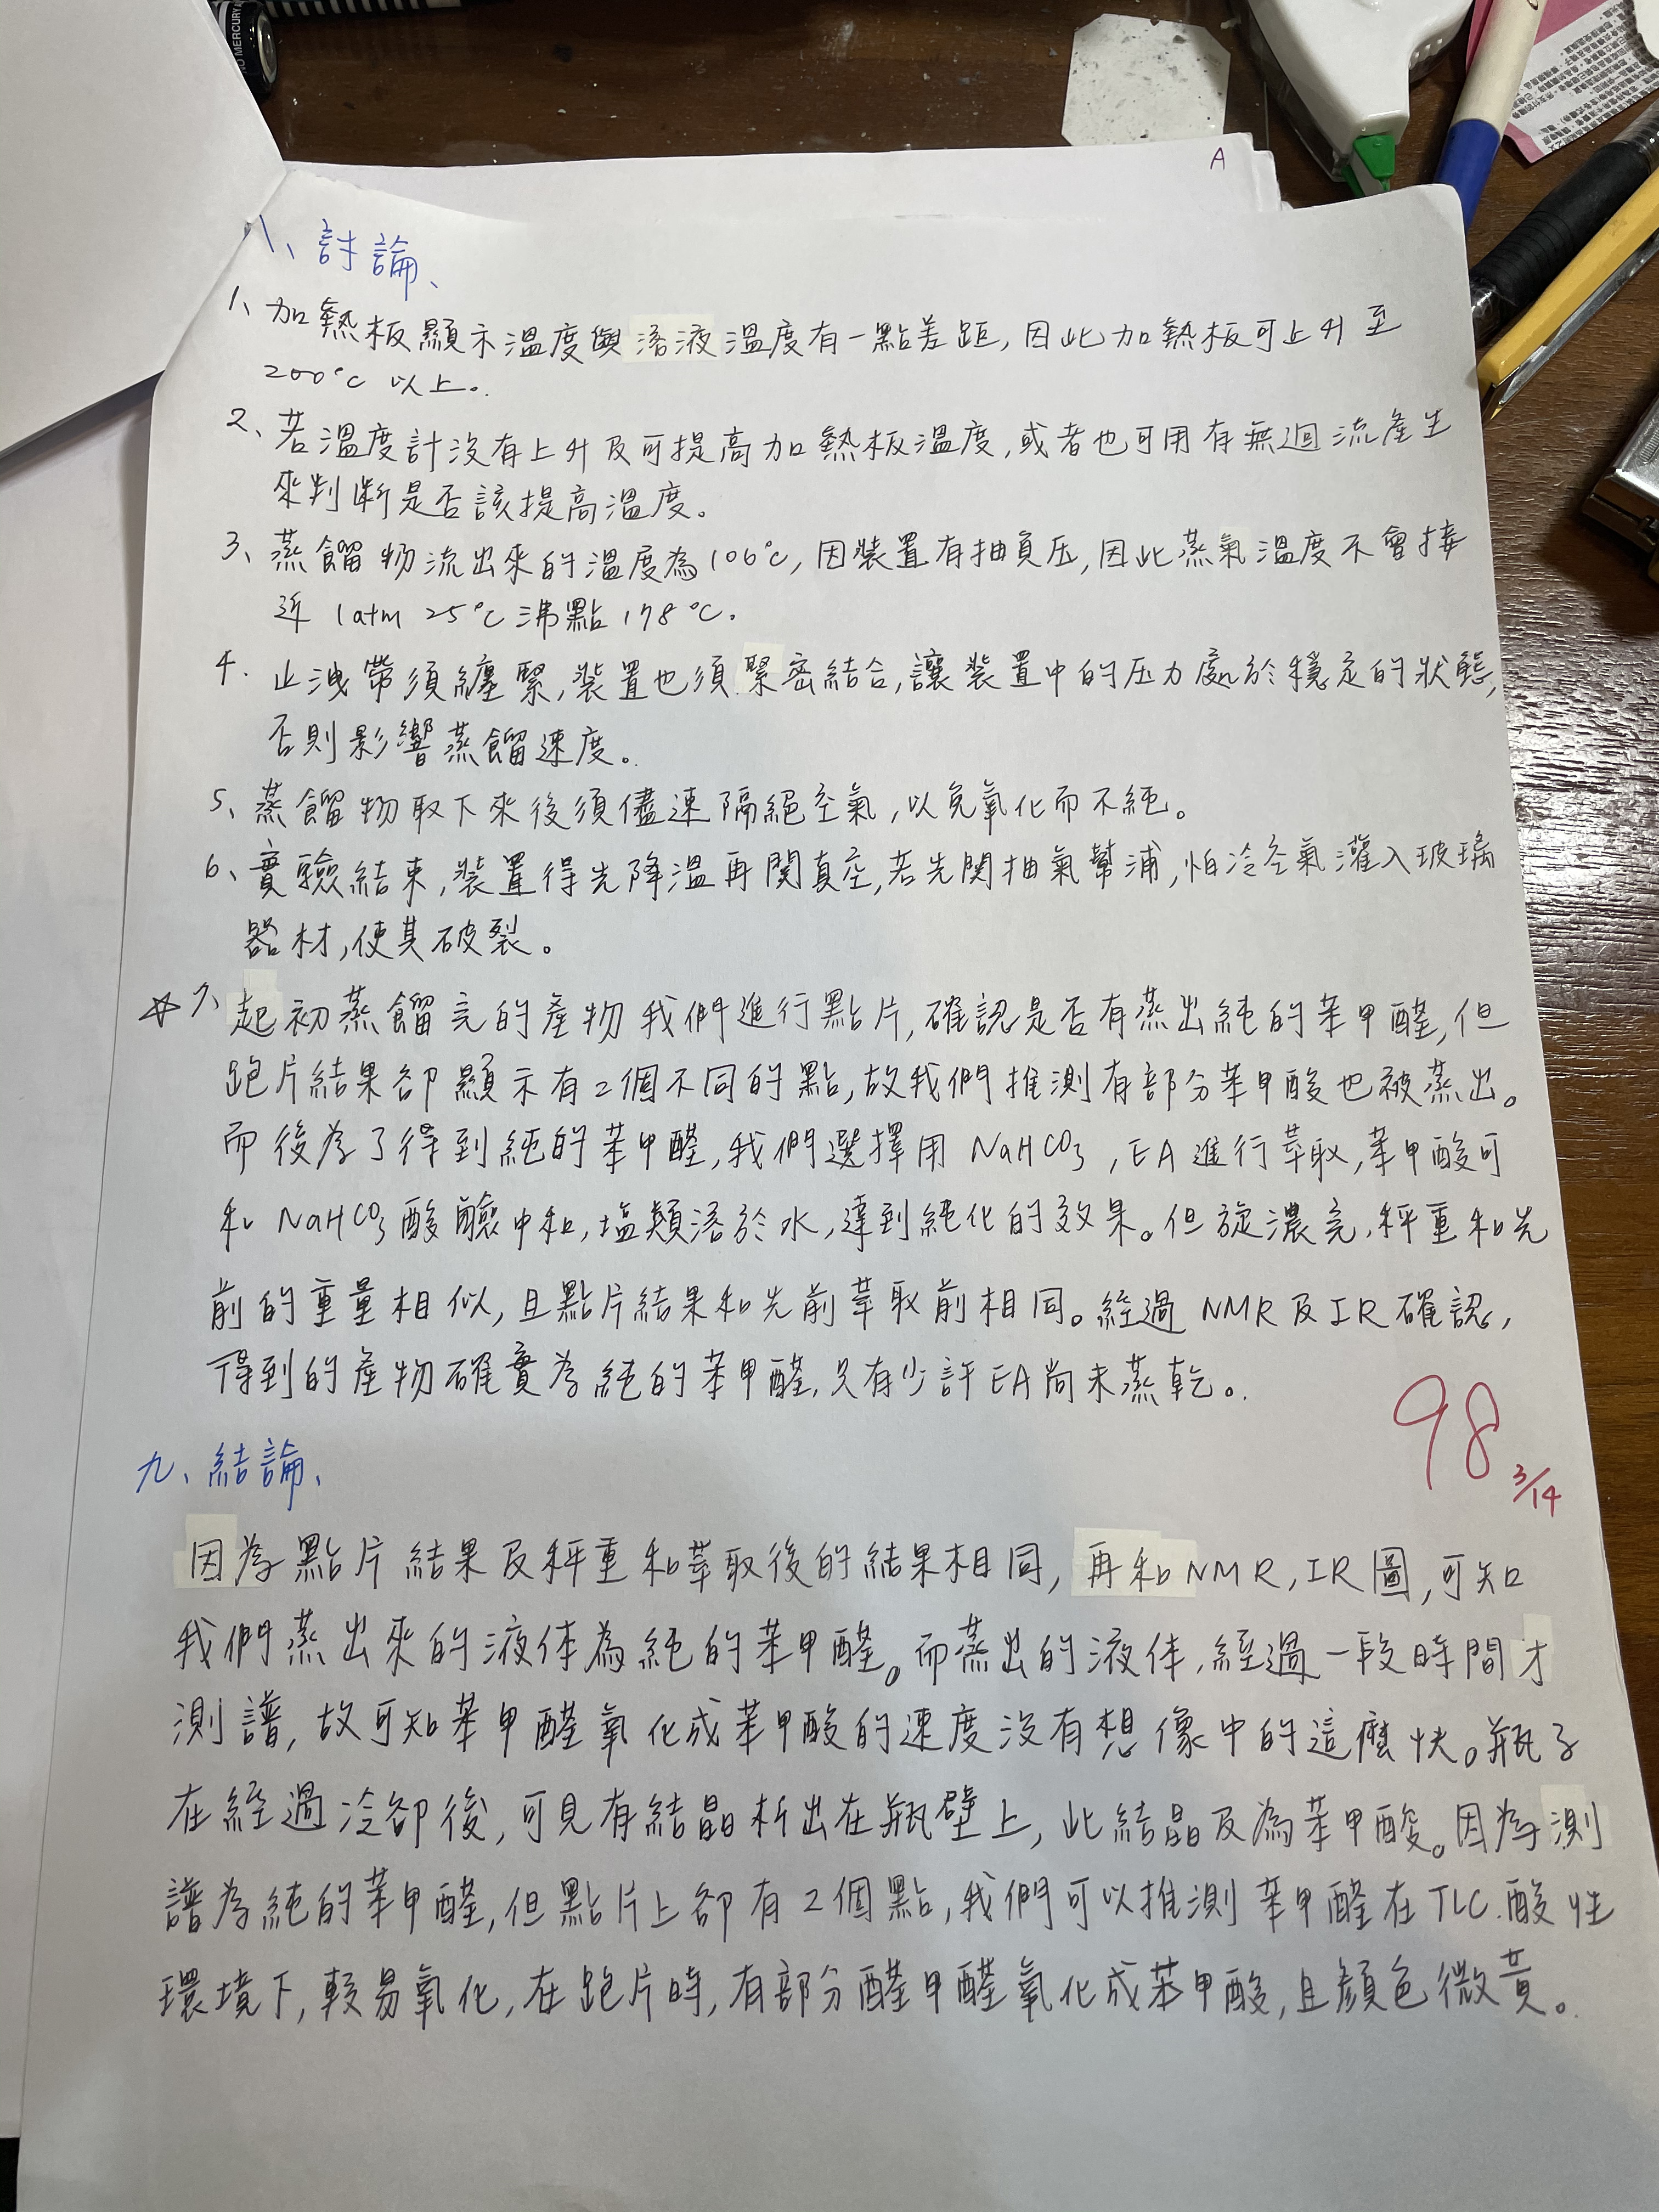 NO MERCURY
A
八、討論、
1、加熱板顯示溫度與溶液溫度有一點差距,因此加熱板可上升至
200°C 以上。
2、若溫度計沒有上升及可提高加熱板溫度,或者也可用有無迴流產生
來判斷是否該提高溫度。
3、蒸餾物流出來的溫度為106°C,因裝置有抽負压,因此蒸氣溫度不會接
近 1atm 25°C 沸點 178°C.
4. 止洩帶須纏緊,裝置也須緊密結合,讓裝置中的压力處於穩定的狀態,
否則影響蒸餾速度。
5、蒸餾物取下來後須儘速隔絕空氣,以免氧化而不純。
6、實驗結束,裝置得先降溫再関真空,若先関抽氣幫浦,怕冷空氣灌入玻璃
器材,使其破裂。
☆7、起初蒸餾完的產物我們進行點片,確認是否有蒸出純的苯甲醛,但
跑片結果卻顯示有2個不同的點,故我們推測有部分苯甲酸也被蒸出。
而後為了得到純的苯甲醛,我們選擇用 NaHCO3,EA進行萃取,苯甲酸可
和 NaHCO3 酸鹼中和,塩類溶於水,達到純化的效果。但旋濃完,秤重和先
前的重量相似,且點片結果和先前萃取前相同。經過 NMR及IR確認,
得到的產物確實為純的苯甲醛,只有少許EA尚未蒸乾。
98
3/14
九、結論、
因為點片結果及秤重和萃取後的結果相同,再和NMR,IR圖,可知
我們蒸出來的液体為純的苯甲醛。而蒸出的液体,經過一段時間才
測譜,故可知苯甲醛氧化成苯甲酸的速度沒有想像中的這麼快。瓶子
在經過冷卻後,可見有結晶析出在瓶壁上,此結晶及為苯甲酸。因為測
譜為純的苯甲醛,但點片上卻有2個點,我們可以推測苯甲醛在TLC.酸性
環境下,較易氧化,在跑片時,有部分醛甲醛氧化成苯甲酸,且顏色微黃。